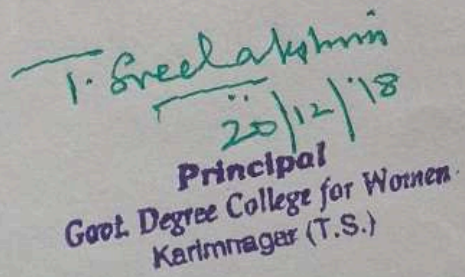 T. Sreelakshmi
20/12/'18
Principal
Govt. Degree College for Women
Karimnagar (T.S.)